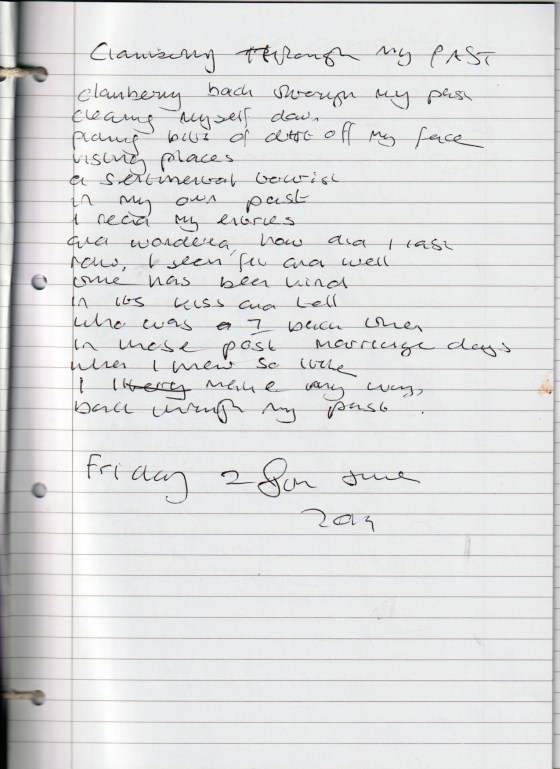 Clambering through my PAST
clambering back through my past
clearing myself down
picking bits of off my face
visiting places
a sentimental tourist
in my own past
I read my entries
and wondered, how did I last
now, I seem fit and well
time has been kind
in its kiss and tell
who was I back then
in those post marriage days
when I knew so little
I make my way,
back through my past.
Friday 28th June
2019